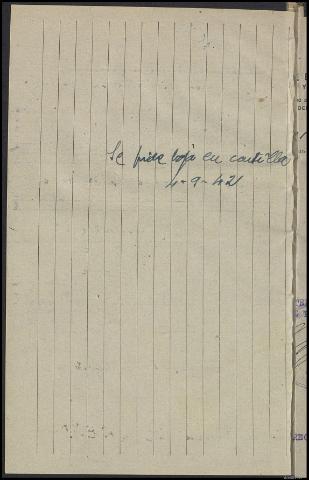 Se pide baja en cartilla
4-9-42